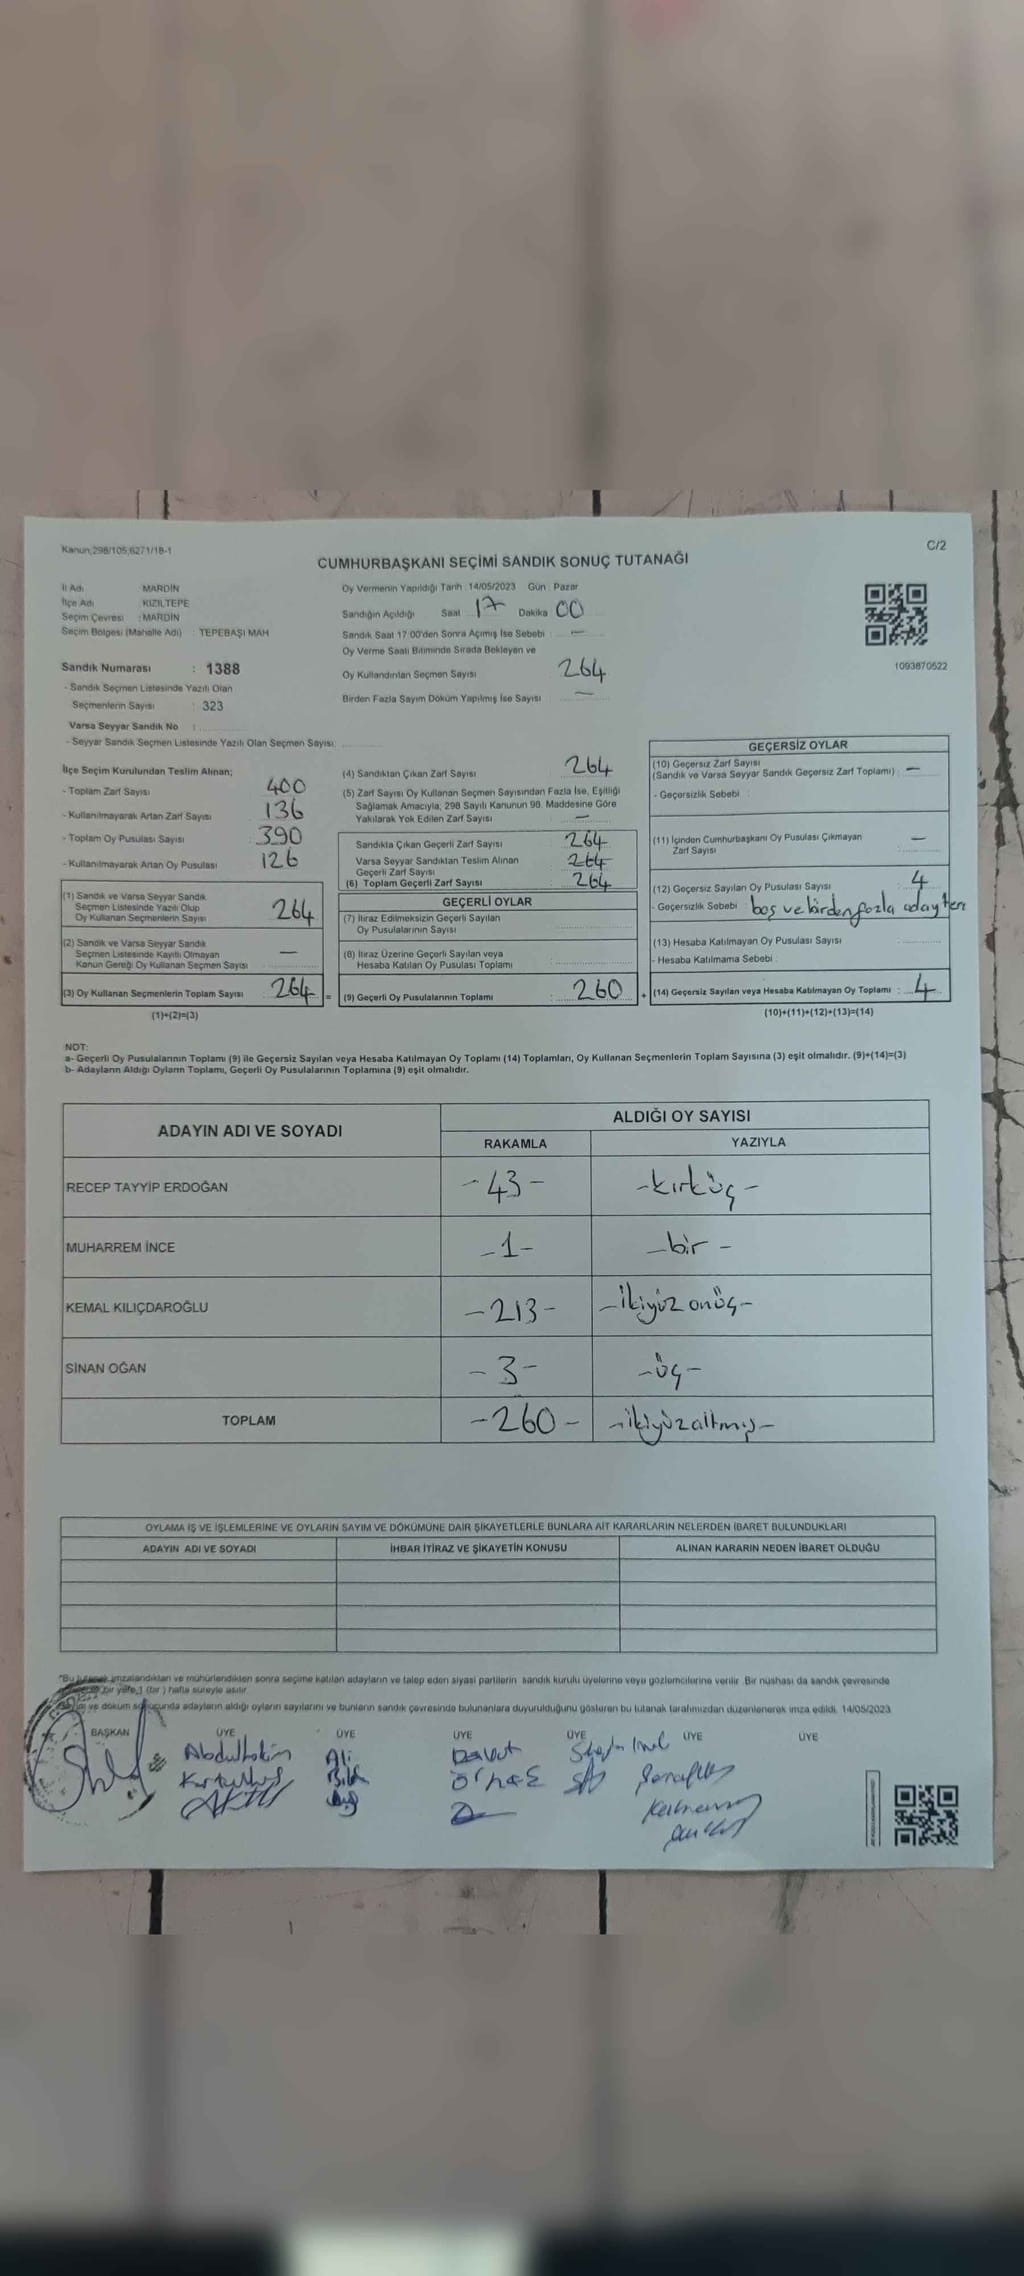 Kanun;298/105;6271/18-1
C/2
CUMHURBAŞKANI SEÇİMİ SANDIK SONUÇ TUTANAĞI
İl Adı MARDİN
İlçe Adı KIZILTEPE
Seçim Çevresi : MARDİN
Seçim Bölgesi (Mahalle Adı) : TEPEBAŞI MAH
Sandık Numarası : 1388
- Sandık Seçmen Listesinde Yazılı Olan
Seçmenlerin Sayısı : 323
Varsa Seyyar Sandık No :
- Seyyar Sandık Seçmen Listesinde Yazılı Olan Seçmen Sayısı:
Oy Vermenin Yapıldığı Tarih : 14/05/2023 Gün : Pazar
Sandığın Açıldığı Saat 17 Dakika 00
Sandık Saat 17:00'den Sonra Açılmış İse Sebebi : —
Oy Verme Saati Bitiminde Sırada Bekleyen ve
Oy Kullandırılan Seçmen Sayısı 264
Birden Fazla Sayım Döküm Yapılmış İse Sayısı —
1093870522
İlçe Seçim Kurulundan Teslim Alınan;
- Toplam Zarf Sayısı 400
- Kullanılmayarak Artan Zarf Sayısı 136
- Toplam Oy Pusulası Sayısı 390
- Kullanılmayarak Artan Oy Pusulası 126
(1) Sandık ve Varsa Seyyar Sandık
Seçmen Listesinde Yazılı Olup
Oy Kullanan Seçmenlerin Sayısı 264
(2) Sandık ve Varsa Seyyar Sandık
Seçmen Listesinde Kayıtlı Olmayan
Kanun Gereği Oy Kullanan Seçmen Sayısı —
(3) Oy Kullanan Seçmenlerin Toplam Sayısı 264 =
(1)+(2)=(3)
(4) Sandıktan Çıkan Zarf Sayısı 264
(5) Zarf Sayısı Oy Kullanan Seçmen Sayısından Fazla İse, Eşitliği
Sağlamak Amacıyla, 298 Sayılı Kanunun 98. Maddesine Göre
Yakılarak Yok Edilen Zarf Sayısı —
Sandıkta Çıkan Geçerli Zarf Sayısı 264
Varsa Seyyar Sandıktan Teslim Alınan
Geçerli Zarf Sayısı 264
(6) Toplam Geçerli Zarf Sayısı 264
GEÇERLİ OYLAR
(7) İtiraz Edilmeksizin Geçerli Sayılan
Oy Pusulalarının Sayısı
(8) İtiraz Üzerine Geçerli Sayılan veya
Hesaba Katılan Oy Pusulası Toplamı
(9) Geçerli Oy Pusulalarının Toplamı : 260 +
GEÇERSİZ OYLAR
(10) Geçersiz Zarf Sayısı
(Sandık ve Varsa Seyyar Sandık Geçersiz Zarf Toplamı) : —
- Geçersizlik Sebebi :
(11) İçinden Cumhurbaşkanı Oy Pusulası Çıkmayan
Zarf Sayısı —
(12) Geçersiz Sayılan Oy Pusulası Sayısı 4
- Geçersizlik Sebebi : boş ve birden fazla adaytere
(13) Hesaba Katılmayan Oy Pusulası Sayısı
- Hesaba Katılmama Sebebi :
(14) Geçersiz Sayılan veya Hesaba Katılmayan Oy Toplamı : 4
(10)+(11)+(12)+(13)=(14)
NOT:
a- Geçerli Oy Pusulalarının Toplamı (9) ile Geçersiz Sayılan veya Hesaba Katılmayan Oy Toplamı (14) Toplamları, Oy Kullanan Seçmenlerin Toplam Sayısına (3) eşit olmalıdır. (9)+(14)=(3)
b- Adayların Aldığı Oyların Toplamı, Geçerli Oy Pusulalarının Toplamına (9) eşit olmalıdır.
ADAYIN ADI VE SOYADI ALDIĞI OY SAYISI
RAKAMLA YAZIYLA
RECEP TAYYİP ERDOĞAN -43- -kırküç-
MUHARREM İNCE -1- -bir-
KEMAL KILIÇDAROĞLU -213- -ikiyüz onüç-
SİNAN OĞAN -3- -üç-
TOPLAM -260- -ikiyüzaltmış-
OYLAMA İŞ VE İŞLEMLERİNE VE OYLARIN SAYIM VE DÖKÜMÜNE DAİR ŞİKAYETLERLE BUNLARA AİT KARARLARIN NELERDEN İBARET BULUNDUKLARI
ADAYIN ADI VE SOYADI İHBAR İTİRAZ VE ŞİKAYETİN KONUSU ALINAN KARARIN NEDEN İBARET OLDUĞU
*Bu tutanak imzalandıktan ve mühürlendikten sonra seçime katılan adayların ve talep eden siyasi partilerin sandık kurulu üyelerine veya gözlemcilerine verilir. Bir nüshası da sandık çevresinde
bir yere 1 (bir) hafta süreyle asılır.
ve döküm sonucunda adayların aldığı oyların sayılarını ve bunların sandık çevresinde bulunanlara duyurulduğunu gösteren bu tutanak tarafımızdan düzenlenerek imza edildi. 14/05/2023
BAŞKAN ÜYE ÜYE ÜYE ÜYE ÜYE ÜYE
Abdulhakim Ali Davut